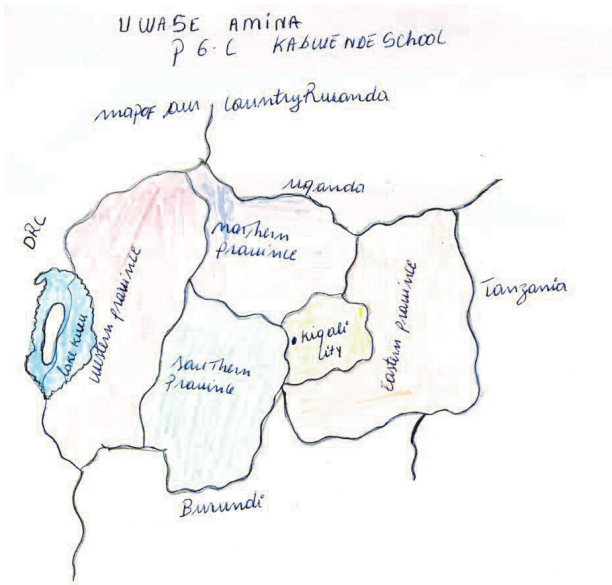 UWASE AMINA
P 6.C KABWENDE SCHOOL
map of our Country Rwanda
Uganda
DRC
northern
Province
Western province
Lake Kivu
Kigali
City
Eastern province
Tanzania
Southern
Province
Burundi